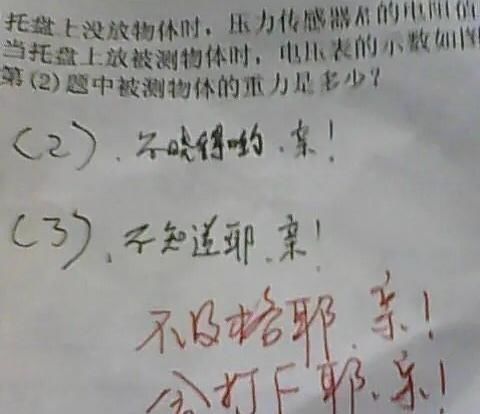 托盘上没放物体时，压力传感器R的电阻值
当托盘上放被测物体时，电压表的示数如图
第(2)题中被测物体的重力是多少？
(2)、不晓得哟、亲！
(3)、不知道耶、亲！
不及格耶、亲！
会打F耶、亲！